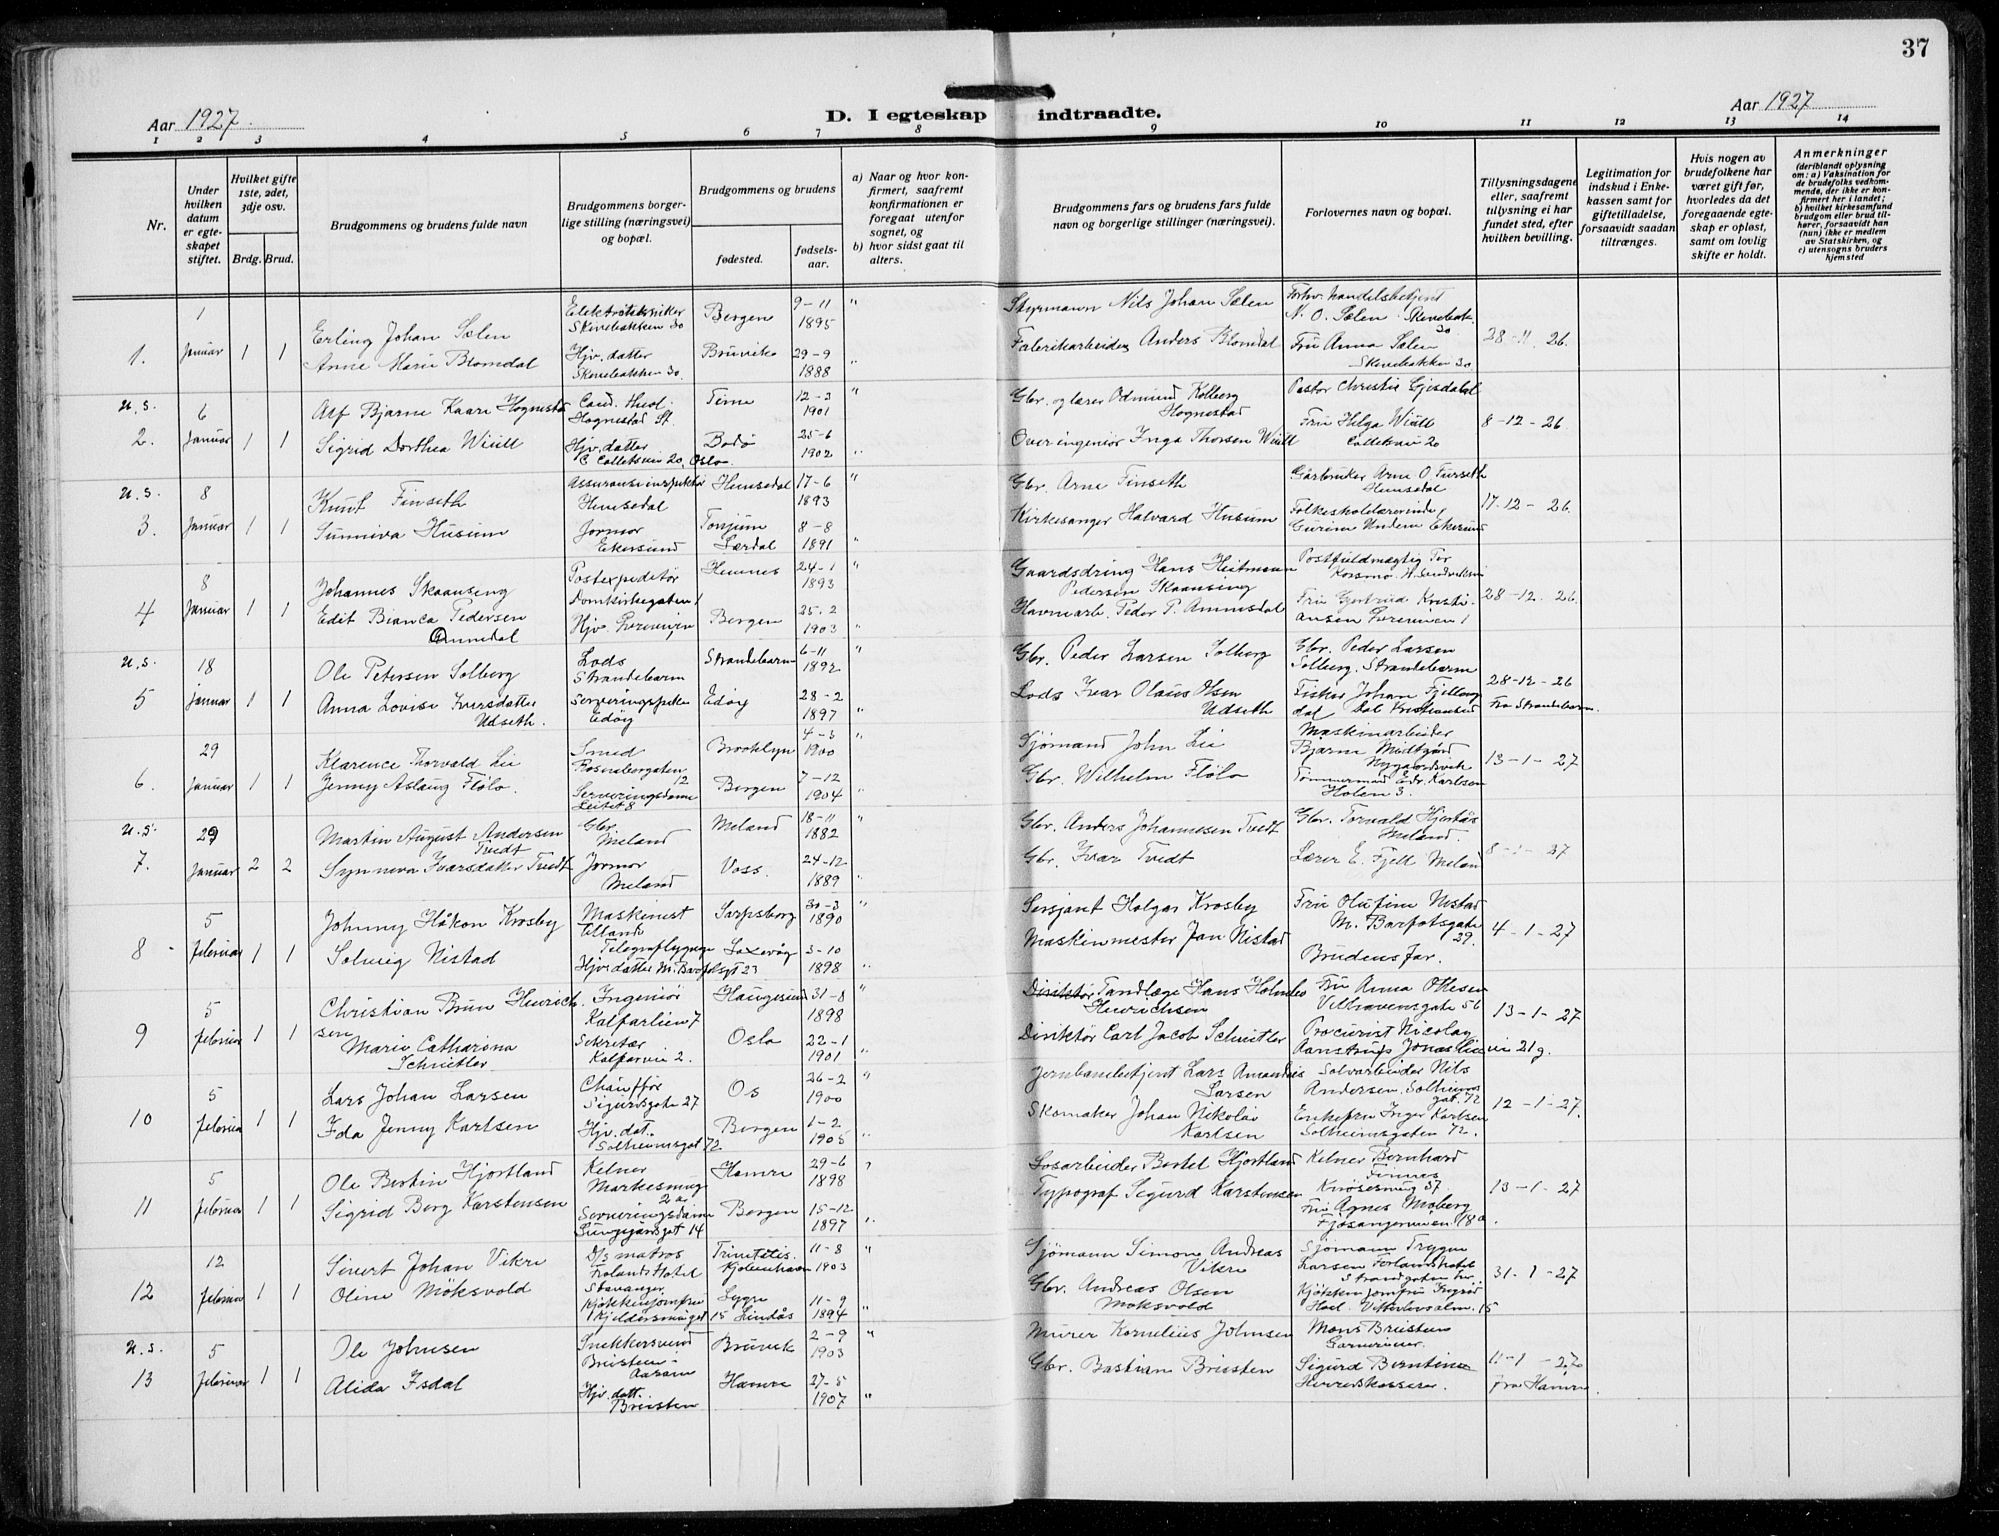 37
Aar 1927
D. I egteskap indtraadte.
Aar 1927
1 2 3 4 5 6 7 8 9 10 11 12 13 14
Nr.
Under hvilken datum er egteskapet stiftet.
Hvilket gifte 1ste, 2det, 3dje osv.
Brdg. Brud.
Brudgommens og brudens fulde navn
Brudgommens borgerlige stilling (næringsvei) og bopæl.
Brudgommens og brudens
fødested.
fødselsaar.
a) Naar og hvor konfirmert, saafremt konfirmationen er foregaat utenfor sognet, og
b) hvor sidst gaat til alters.
Brudgommens fars og brudens fars fulde navn og borgerlige stillinger (næringsvei).
Forlovernes navn og bopæl.
Tillysningsdagene eller, saafremt tillysning ei har fundet sted, efter hvilken bevilling.
Legitimation for indskud i Enkekassen samt for giftetilladelse, forsaavidt saadan tiltrænges.
Hvis nogen av brudefolkene har været gift før, hvorledes da det foregaaende egteskap er opløst, samt om lovlig skifte er holdt.
Anmerkninger
(deriblandt oplysning om: a) Vaksination for de brudefolks vedkommende, der ikke er konfirmert her i landet; b) hvilket kirkesamfund brudgom eller brud tilhører, forsaavidt han (hun) ikke er medlem av Statskirken, og c) utensogns bruders hjemsted
1. 1 Januar 1 1
Erling Johan Sælen
Anne Marie Blomdal
Elektrotekniker
Skivebakken 30
Hjv. datter
Skivebakken 30.
Bergen 9-11 1895 "
Bruvik 29-9 1888 "
Styrmann Nils Johan Sælen
Fabrikarbeider Anders Blomdal
Forhv. handelsbetjent
N. O. Sælen Skivebak. 30
Fru Anna Sælen
Skivebakken 30.
28-11-26.
u.s. 2. 6 Januar 1 1
Alf Bjarne Kaare Hognestad
Sigrid Dorthea Wiull
Cand. theol.
Hognestad St.
Hjv. datter
C. Colletsvei 20, Oslo.
Time 12-3 1901 "
Bodø 25-6 1902 "
Gbr. og lærer Odmund Kolberg
Hognestad
Overingeniør Inga Thorsen Wiull
Pastor Christie Gjesdahl
Fru Helga Wiull
Colletsvei 20
8-12-26.
u.s. 3. 8 Januar 1 1
Knut Finseth
Sunniva Husum
Assuranseinspektør
Hemsedal
Jormor
Ekersund
Hemsedal 17-6 1893 "
Tønjum
Lærdal 8-8 1891 "
Gbr. Arne Finseth
Kirkesanger Halvard Husum
Gårbruker Arne O. Finseth
Hemsedal
Folkeskolelærerinde
Ekersund
17.12-26.
4 8 Januar 1 1
Johannes Skaanseng
Edit Bianca Pedersen
Ammedal
Postexpeditør
Domkirkegaten 1
Hjv.
Hemnes 24-1 1893 "
Bergen 25-2 1903 "
Gaardsdreng Hans Heitmann
Pedersen Skaanseng
Havnearb. Peder P. Ammedal
Postfuldmægtig Tor
Korsmo
Fru Gjertrud Kristiansen
28-12-26.
u.s. 5 18 Januar 1 1
Ole Petersen Solberg
Anna Lovise Iversdatter
Udseth.
Lods
Strandebarm
Serveringspike
Edøy
Strandebarm 6-11 1892 "
Edøy 28-2 1897 "
Gbr. Peder Larsen Solberg
Lods Ivar Olaus Olsen
Udseth
Gbr. Peder Larsen
Solberg. Strandebarm
Fisker Johan
Kristiansund
28-12-26
Fra Strandebarm.
6. 29 Januar 1 1
Klarence Thorvald Lie
Jenny Aslaug Flølo.
Smed
Rosenborgaten 12
Serveringsdame
Leitet 8
Brooklyn 4-3 1900 "
Bergen 7-12 1904 "
Sjømand John Lie
Gbr. Wilhelm Flølo
Maskinarbeider
Bjarne Midtgård
Nygaardsvik
Tømmermand Edv. Karlsen
Holen 3.
13-1-27
u.s. 7. 29 Januar 2 2
Martin August Andersen
Tvedt
Synneva Ivarsdatter Tvedt
Gbr.
Meland
Jormor
Meland
Meland 18-11 1882 "
Voss. 24-12 1889
Gbr. Anders Johannesen Tvedt
Gbr. Ivar Tvedt
Gbr. Torvald Hjertås
Meland.
Lærer E. Fjell Meland
8-1-27
8 5 Februar 1 1
Johnny Håkon Krosby
Solveig Nistad
Maskinist
Utlands
Telegrafbygning
Hjv. datter M. Barfotsgt 23
Sarpsborg 30-3 1890 "
Laxevåg 3-10 1898 "
Sersjant Holger Krosby
Maskinmester Jan Nistad
Fru Olufine Nistad
M. Barfotsgate 29.
Brudens far.
4-1-27
9 5 Februar 1 1
Christian Brun Henrichsen
Marie Catharina
Schnitler
Ingeniør
Kalfarlien 7
Sekretær
Kalfarvei 2.
Haugesund 31-8 1898 "
Oslo 22-1 1901 "
Direktør Tandlæge Hans Holmboe
Henrichsen
Direktør Carl Jacob Schnitler
Fru Anna Ottesen
Welhavensgate 56
Procurist Nicolay
Aanstrups Jonas Lies vei 21g.
13-1-27
10 5 Februar 1 1
Lars Johan Larsen
Ida Jenny Karlsen
Chauffør
Sigurdsgate 27
Hjv. dat.
Solheimsgat 72
Os 26-2 1900 "
Bergen 1-2 1905 "
Jernbanebetjent Lars Amandus
Larsen
Skomaker Johan Nikolai
Karlsen
Solvarbeider Nils
Andersen. Solheimsgat. 72
Enkefru Inger Karlsen
Solheimsgaten 72.
12-1-27.
11 5 Februar 1 1
Ole Bertin Hjortland
Sigrid Berg Karstensen
Kelner
Markesmug 2a
Serveringsdame
Lungegårdsgat 14
Hamre 29-6 1898 "
Bergen 15-12 1897 "
Losarbeider Bertel Hjortland
Typograf Sigurd Karstensen
Kelner Bernhard
Finnes
Knøsesmug 37
Fru Agnes Moberg
Fjøsangerveien 18a.
13-1-27
12 12 Februar 1 1
Sivert Johan Vikre
Oline Møksvold
D/S matros
Stavanger
Kjøkkenjomfru
15
Trinitatis.
Kjøbenhavn 11-8 1903 "
Lygre
Lindås 11-9 1894 "
Sjømann Simon Andreas
Vikre
Gbr. Andreas Olsen
Møksvold
Sjømann Trygve
Larsen
Strandgaten
Kjøkkenjomfru Ingrid
15
31-1-27
u.s. 13 5 Februar 1 1
Ole Johnsen
Alida Isdal
Snekkersvend
Bruvik 2-9 1903 "
Hjv. datt.
Hamre 27-5 1907 "
Murer Kornelius Johnsen
Gbr. Bastian
Mons
Sigurd Berntsen
Herredskasserer.
11-1-27
fra Hamre.